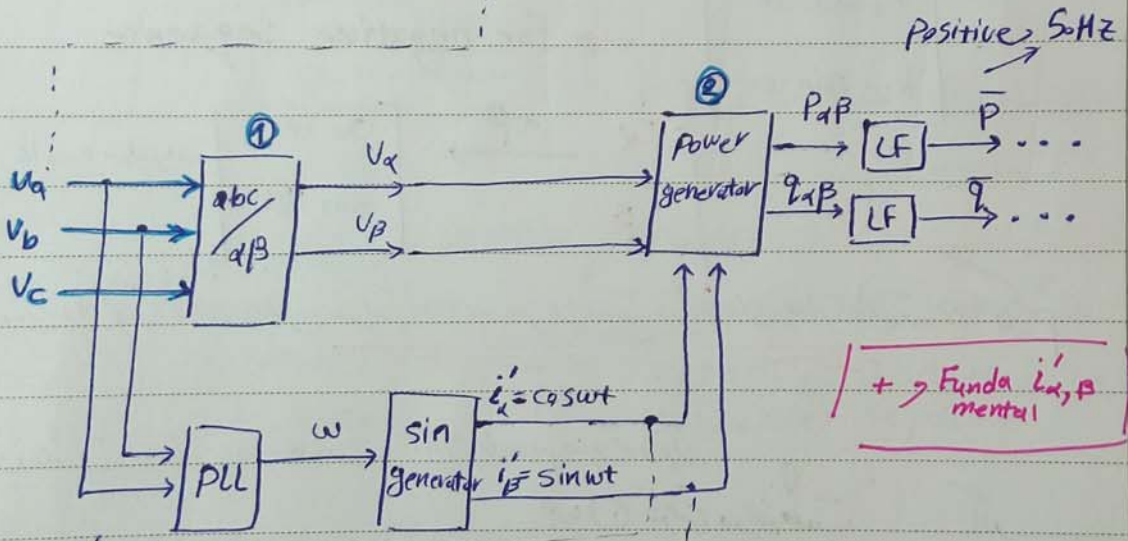 Positive, 50HZ
①
②
Va
Vb
Vc
abc
αβ
Vα
Vβ
Power
generator
Pαβ
LF
p̄
...
qαβ
LF
q̄
...
PLL
ω
sin
generator
i'α = cosωt
i'β = sinωt
+ → Funda i'α,β
mental